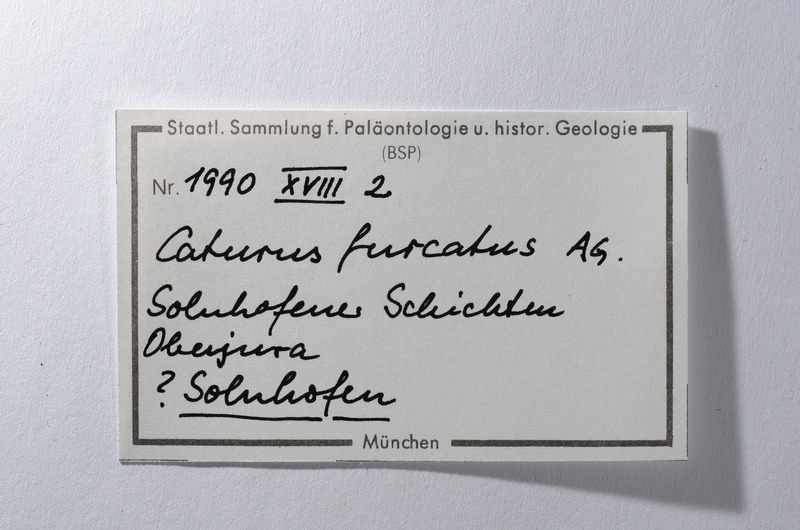 Staatl. Sammlung f. Paläontologie u. histor. Geologie
(BSP)
Nr. 1990 XVIII 2
Caturus furcatus AG.
Solnhofener Schichten
Oberjura
? Solnhofen
München